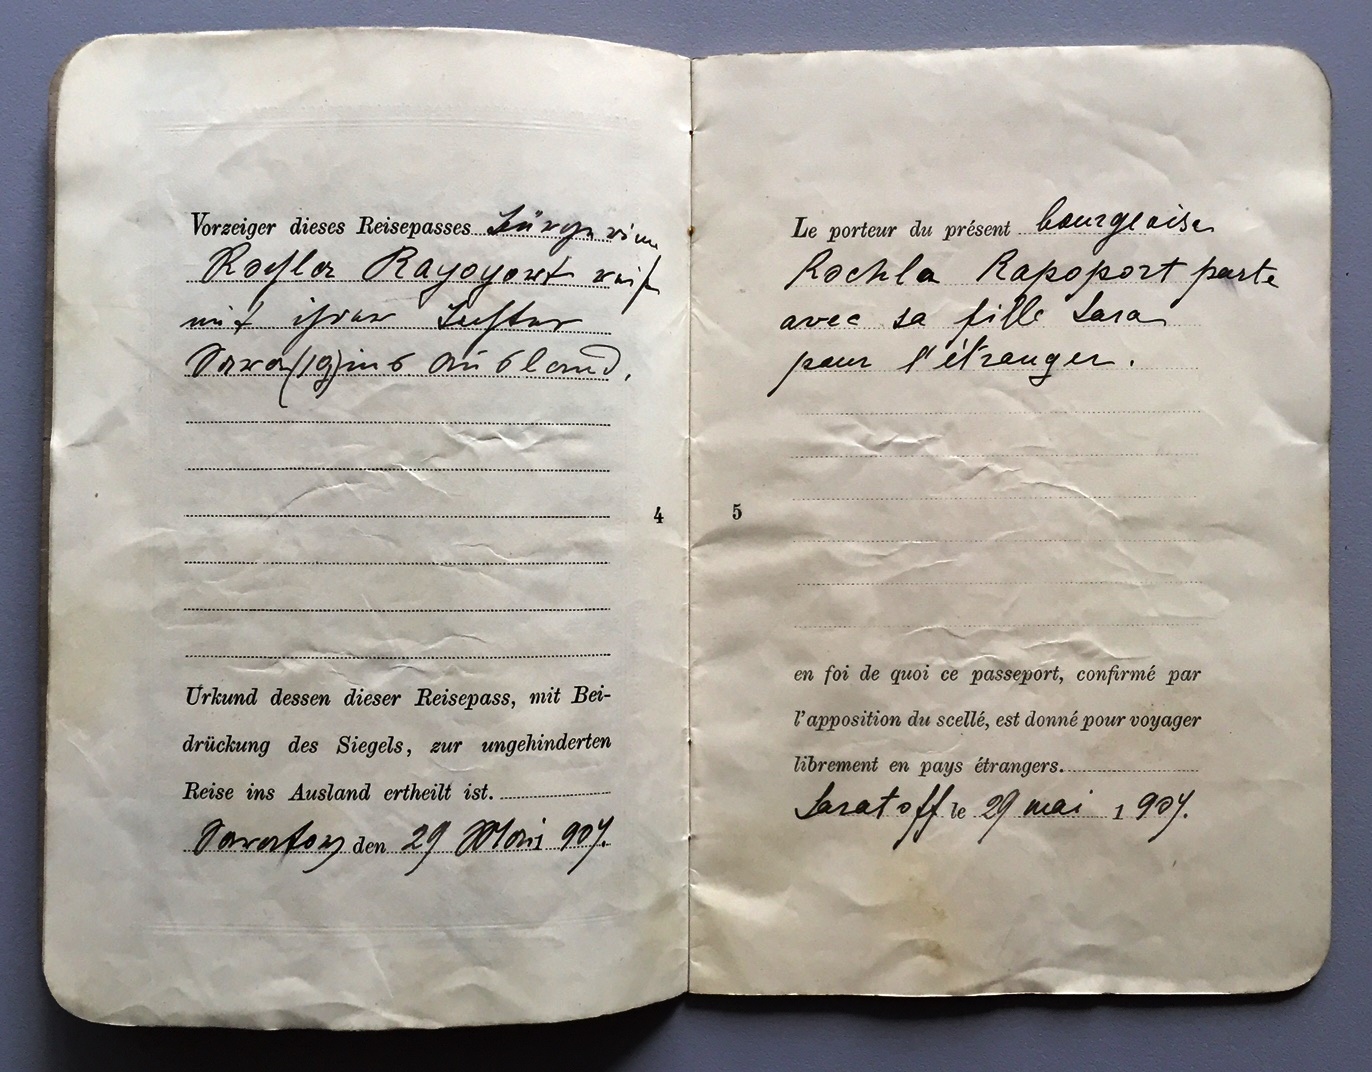 Vorzeiger dieses Reisepasses Bürgerin
Rochla Rapoport reist
mit ihrer Tochter
Sara (19) ins Ausland.
4
Urkund dessen dieser Reisepass, mit Bei-
drückung des Siegels, zur ungehinderten
Reise ins Ausland ertheilt ist.
Saratow den 29 Mai 907.
Le porteur du présent bourgeoise
Rochla Rapoport parte
avec sa fille Sara
pour l'étranger.
5
en foi de quoi ce passeport, confirmé par
l'apposition du scellé, est donné pour voyager
librement en pays étrangers.
Saratoff le 29 mai 1907.